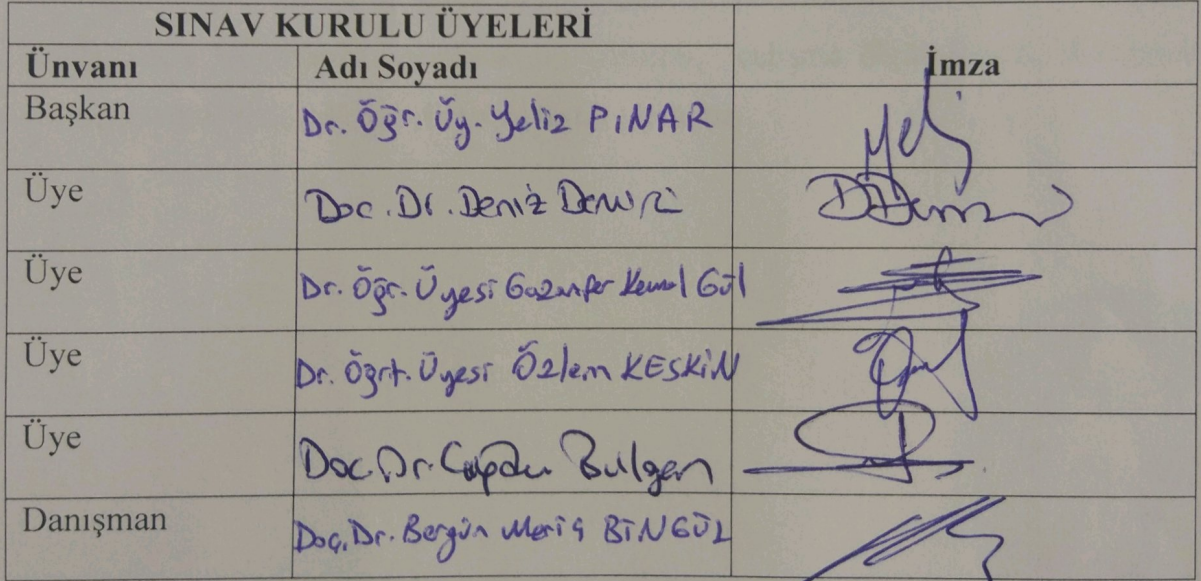 SINAV KURULU ÜYELERİ
Ünvanı Adı Soyadı İmza
Başkan Dr. Öğr. Üy. Yeliz PINAR
Üye Doc. Dr. Deniz Demirci
Üye Dr. Öğr. Üyesi Gazanfer Kemal Gül
Üye Dr. Öğrt. Üyesi Özlem KESKİN
Üye Doc. Dr. Bulgan
Danışman Doç. Dr. Bergün Meriç BİNGÜL